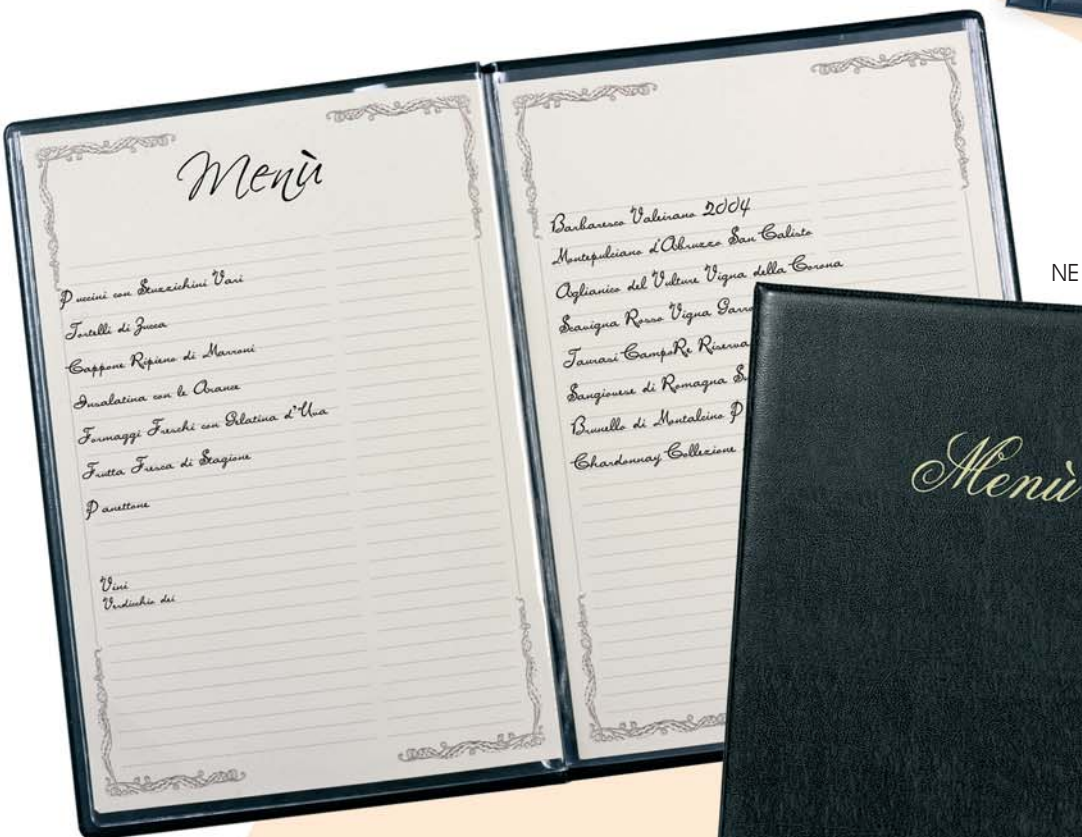 Menù
Puccini con Stuzzichini Vari
Tortelli di Zucca
Cappone Ripieno di Marroni
Insalatina con le Arance
Formaggi Freschi con Gelatina d'Uva
Frutta Fresca di Stagione
Panettone
Vini
Verdicchio dei
Barbaresco Valeirano 2004
Montepulciano d'Abruzzo San Calisto
Aglianico del Vulture Vigna della Corona
Scavigna Rosso Vigna
Taurasi CampoRe Riserva
Sangiovese di Romagna
Brunello di Montalcino
Chardonnay Collezione
NE
Menù